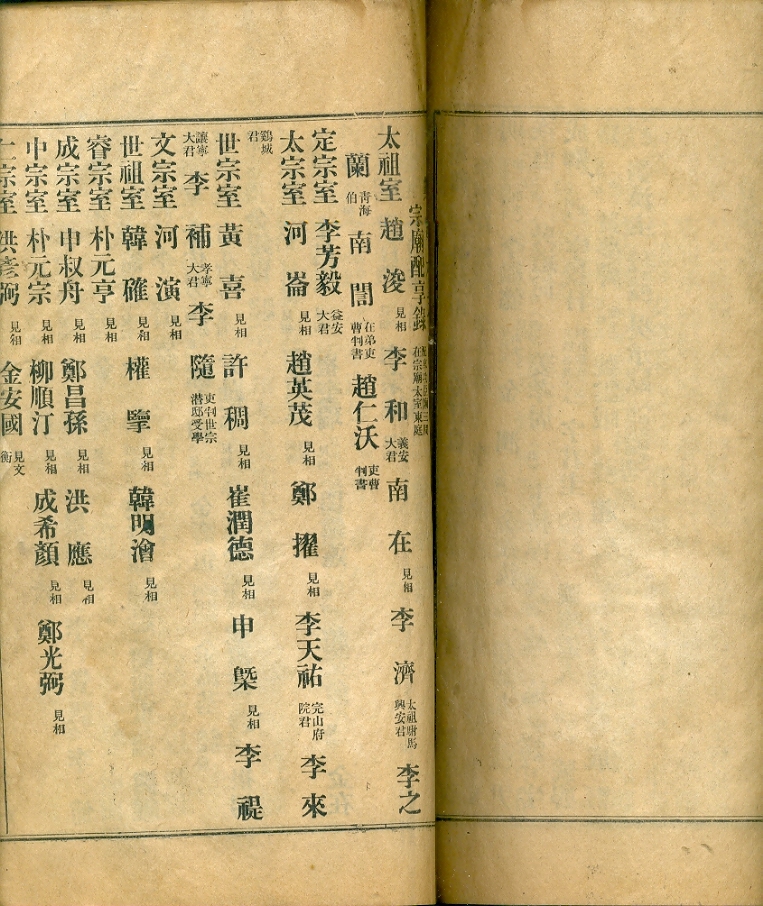 宗廟配享錄 在宗廟太室東庭
太祖室 趙浚 見相 李和 義安大君 南在 見相 李濟 太祖駙馬興安君 李之
蘭 靑海伯 南誾 在弟吏曹判書 趙仁沃 吏曹判書
定宗室 李芳毅 益安大君
太宗室 河崙 見相 趙英茂 見相 鄭擢 見相 李天祐 完山府院君 李來
鷄城君
世宗室 黃喜 見相 許稠 見相 崔潤德 見相 申槩 見相 李禔
讓寧大君 李補 孝寧大君 李隨 吏判世宗潛邸受學
文宗室 河演 見相
世祖室 韓確 見相 權擥 見相 韓明澮 見相
睿宗室 朴元亨 見相
成宗室 申叔舟 見相 鄭昌孫 見相 洪應 見相
中宗室 朴元宗 見相 柳順汀 見相 成希顏 見相 鄭光弼 見相
仁宗室 洪彥弼 見相 金安國 見文衡